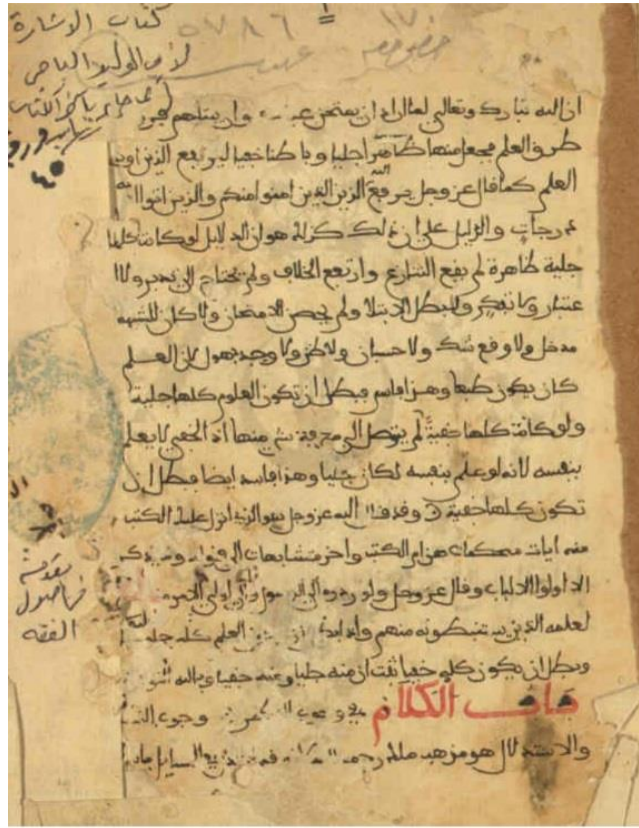 كتاب الاشارة
لابي الوليد الباجي
٥٧٨٦
١٧٠
ان الله تبارك وتعالى لما اراد ان يمتحن وان يبتليهم
طرق العلم فجعل منها ظاهرا جليا وباطنا خفيا ليرفع الذين اوتوا
العلم كما قال عز وجل يرفع الله الذين امنوا منكم والذين اوتوا
درجات والدليل على ان ذلك كذلك هو ان الدلايل لو كانت كلها
جلية ظاهرة لم يقع التنازع وارتفع الخلاف ولم يحتج الى تدبر ولا ا
عتبار ولا تفكر ولبطل الابتلا ولم يحصل الامتحان ولا كان للشبهة
مدخل ولا وقع شك ولا حسبان ولا ظن ولا وجد جهول لان العلم
كان يكون طبعا وهذا فاسد فبطل ان تكون العلوم كلها جلية
ولو كانت كلها خفية لم يتوصل الى معرفة شي منها اذ الخفي لا يعلم
بنفسه لانه لو علم بنفسه لكان جليا وهذا فاسد ايضا فبطل ان
تكون كلها خفية وقد قال الله عز وجل هو الذي انزل عليك الكتب
منه ايات محكمات هن ام الكتب واخر متشابهات الى قوله وما يذكر
الا اولوا الالباب وقال عز وجل ولو ردوه الى الرسول والى اولي الامر
لعلمه الذين يستنبطونه منهم العلم كله جليا
وبطل ان يكون كله خفيا ثبت ان منه جليا ومنه خفيا وبالله التوفيق
باب الكلام في وجوب النظر
والاستدلال هو مذهب ملك رحمه الله
مقدمة
في اصول
الفقه